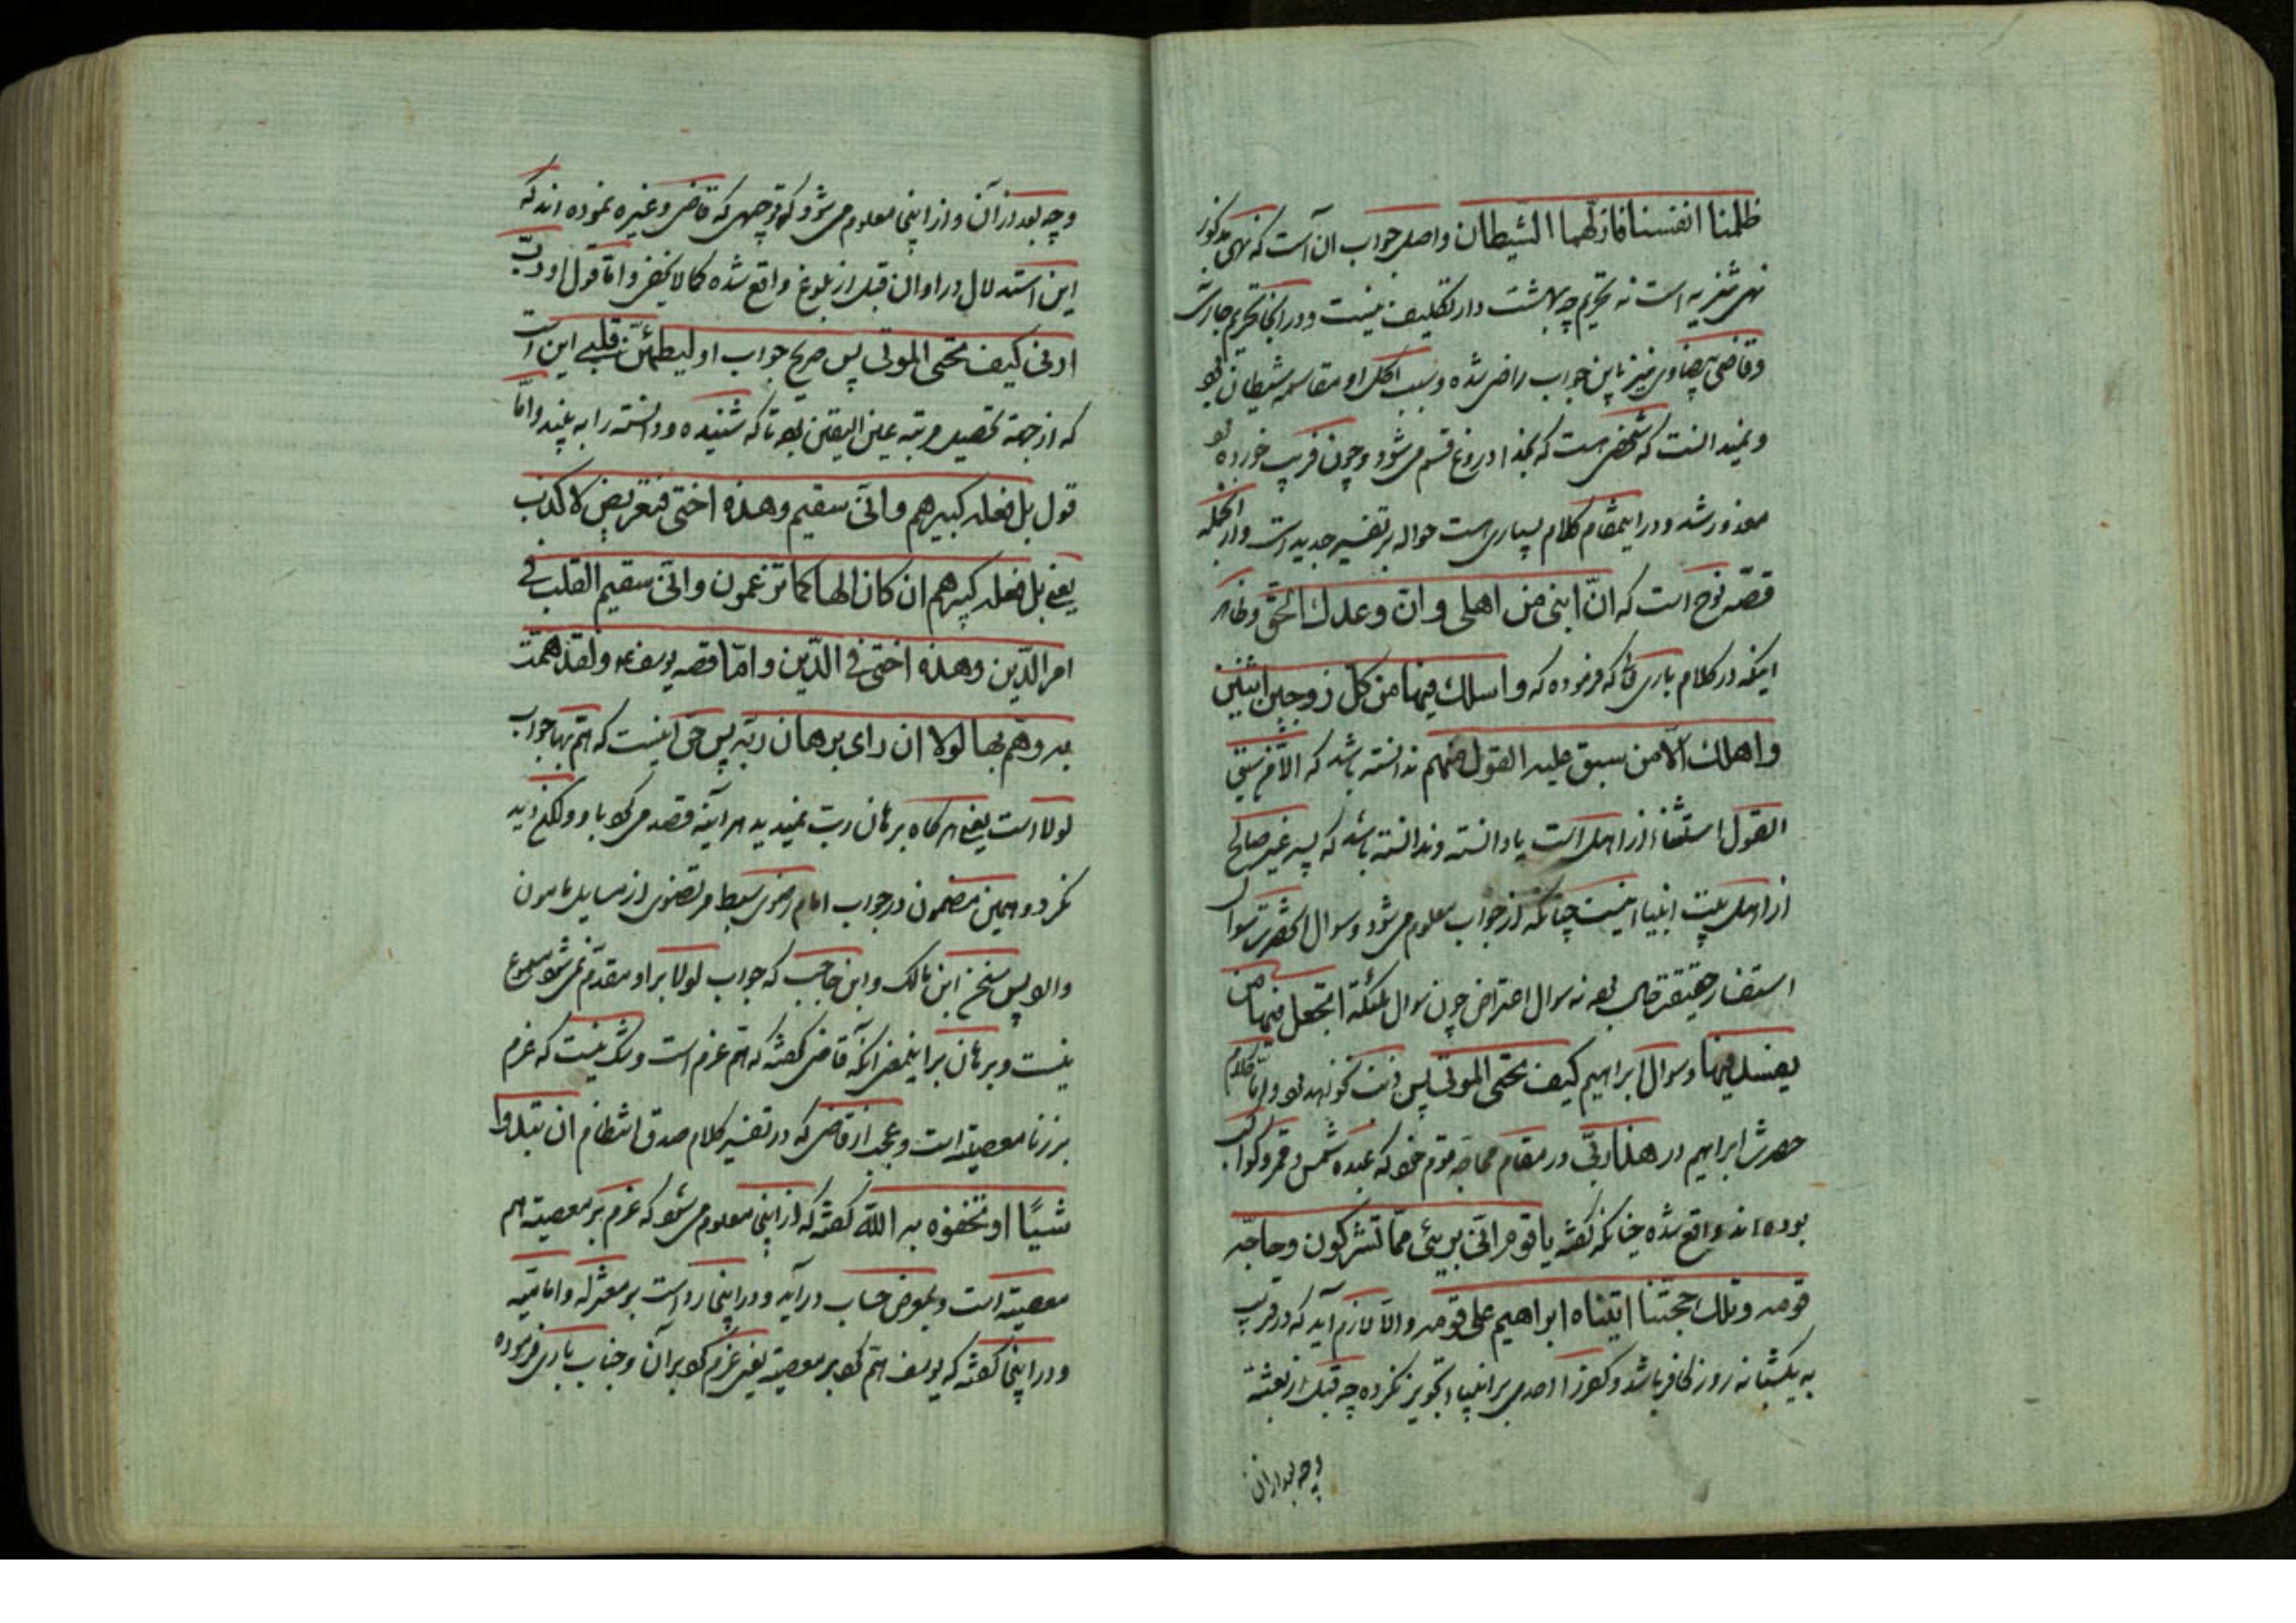 ظلمنا انفسنا فازلهما الشیطان واصل جواب آن است که نهی مذکور
نهی تنزیه است نه تحریم چه بهشت دار تکلیف نیست و در آنجا تحریم جاری
وقاضی بیضاوی نیز باین جواب راضی شده وسبب اکل او مقاسمه شیطان بود
ونمیدانست که شخصی هست که بخدا دروغ قسم می شود وچون فریب خورده بود
معذور شد و در اینمقام کلام بسیاری است حواله بر تفسیر جدید است واز آنجمله
قصّه نوح است که انّ ابنی من اهلی وانّ وعدك الحقّ وظاهر
اینکه در کلام باری تعالی که فرموده که واسلك فیها من کلّ زوجین اثنین
واهلك الّا من سبق علیه القول منهم ندانسته باشد که الّا من سبق
القول استثناء از اهل است یا دانسته وندانسته باشد که پسر غیر صالح
از اهل بیت انبیا نیست چنانکه از جواب معلوم می شود وسوال آنحضرت سوال
استفسار حقیقة حال بود نه سوال اعتراض چون سوال ملئکة اتجعل فیها من
یفسد فیها وسوال ابراهیم کیف تحیی الموتی پس واما کلام
حضرت ابراهیم در هذا ربّی در مقام محاجّه قوم خود که عبده شمس وقمر وکواکب
بوده اند واقع شده چنانکه گفته یا قوم انّی بریئ ممّا تشرکون وحاجّه
قومه وتلك حجتنا اتیناه ابراهیم علی قومه والّا لازم آید که در قریب
به یکشبانه روز کافر باشد وکفر را احدی بر انبیاء تجویز نکرده چه قبل از بعثة
وچه بعد از آن
وچه بعد از آن واز اینجا معلوم می شود که توجیهی که قاضی وغیره نموده اند که
این استدلال در اوان قبل از بلوغ واقع شده کما لا یخفی وامّا قول او ربّ
ارنی کیف تحیی الموتی پس صریح جواب او لیطمئنّ قلبی این است
که از جهة تحصیل مرتبه عین الیقین بود تا که شنیده ودانسته را به بیند وامّا
قول بل فعله کبیرهم وانّی سقیم وهذه اختی فتعریض لا کذب
یعنی بل فعله کبیرهم ان کان الها کما تزعمون وانّی سقیم القلب فی
امر الدّین وهذه اختی فی الدّین وامّا قصه یوسف ولقد همّت
به وهمّ بها لولا ان رای برهان ربّه پس حق اینست که همّ بها جواب
لولا است یعنی هر گاه برهان ربّ نمیدید هر آینه قصد می کرد باو ولکن دید
نکرد وهمین مضمون در جواب امام رضوی سبط مرتضوی از مسایل مامون
والد پس سخن ابن مالک وابن حاجب که جواب لولا بر او مقدّم نمی شود مسموع
نیست وبرهان بر اینمعنی آنکه قاضی گفته که همّ عزم است وشک نیست که عزم
بر زنا معصیة است وعجب از قاضی که در تفسیر کلام صدق انتظام ان تبدوا
شیئًا او تخفوه به الله گفته که از اینجا معلوم می شود که عزم بر معصیة هم
معصیة است وبمعرض حساب در آید ودر اینجا ردّ است بر معتزله وامامیّه
ودر اینجا گفته که یوسف همّ کرد بر معصیة یعنی عزم کرد بر آن وجناب باری فرموده